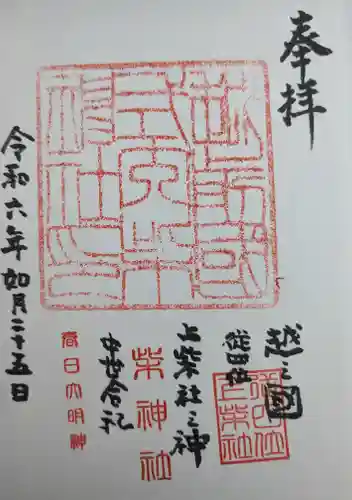 奉拝
越之國
従四位
上柴社之神
柴神社
中世合祀
春日大明神
令和六年如月二十五日